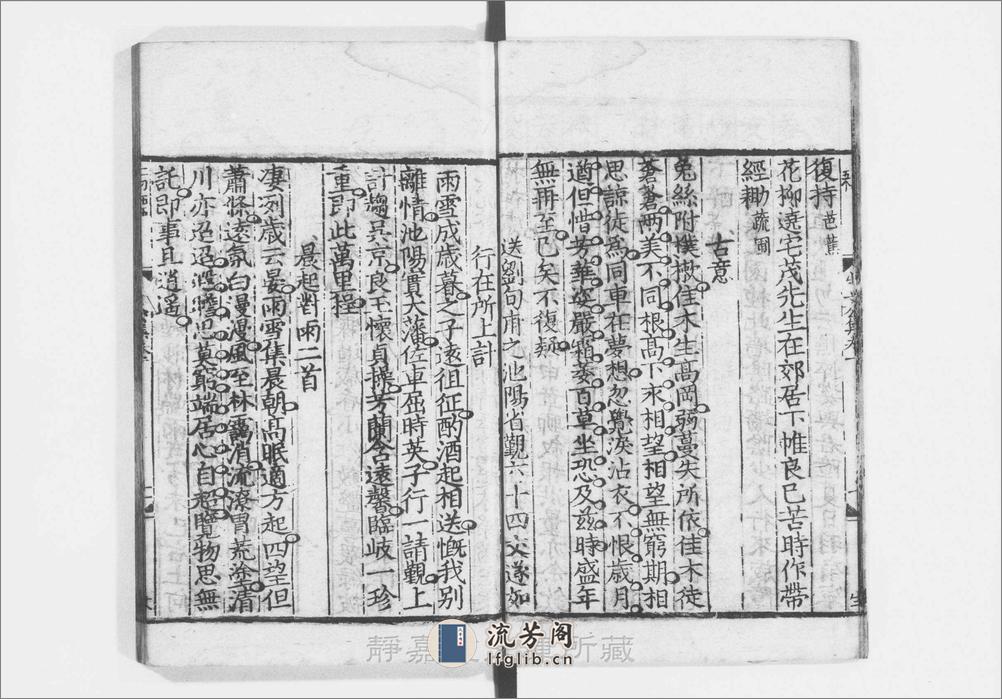 復持芭蕉
花柳遶宅茂先生在郊居下惟良已苦時作帶
經耡蔬圃
古意
兔絲附樸樕佳木生高岡弱蔓失所依佳木徒
蒼蒼兩美不同根高下永相望相望無窮期相
思諒徒為同車在夢想忽覺淚沾衣不恨歲月
遒但惜芳華姿嚴霜萎百草坐恐及茲時盛年
無再至已矣不復疑
送劉旬甫之池陽省覲六十四丈遂如
行在所上計
雨雪成歲暮之子遠徂征酌酒起相送慨我別
離情池陽實大藩佐車屈時英子行一請覲上
計趨吳京良玉懷貞操芳蘭含遠馨臨岐一珍
重即此萬里程
晨起對雨二首
凄冽歲云晏雨雪集晨朝高眠適方起四望但
蕭條遠氛白漫漫風至林霭消流潦冒荒塗清
川亦迢迢思莫窮端居心自超覽物思無
託即事且逍遙
靜嘉堂文庫所藏
流芳阁
lfglib.cn